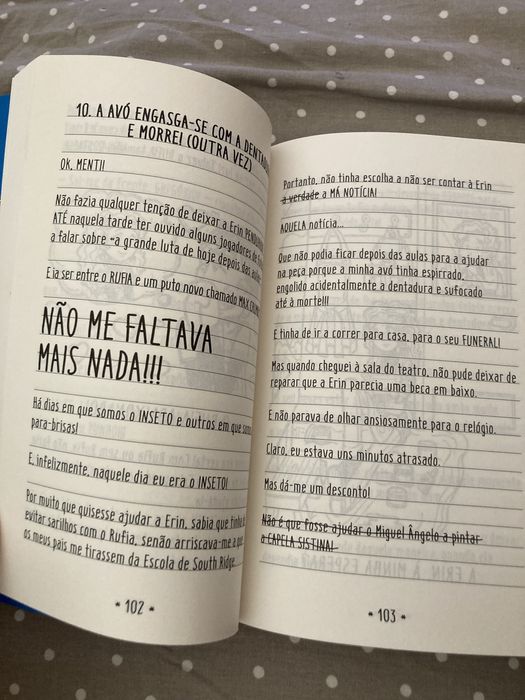 10. A AVÓ ENGASGA-SE COM A
E MORRE! (OUTRA VEZ)
OK, MENTI!
Não fazia qualquer tenção de deixar a Erin
ATÉ naquela tarde ter ouvido alguns jogadores de
a falar sobre «a grande luta de hoje depois das
E ia ser entre o RUFIA e um puto novo chamado MAX
NÃO ME FALTAVA
MAIS NADA!!!
Há dias em que somos o INSETO e outros em que somos
para-brisas!
E, infelizmente, naquele dia eu era o INSETO!
Por muito que quisesse ajudar a Erin, sabia que tinha de
evitar sarilhos com o Rufia, senão arriscava-me a que
os meus pais me tirassem da Escola de South Ridge.
* 102 *
Portanto, não tinha escolha a não ser contar à Erin
a verdade a MÁ NOTÍCIA!
AQUELA notícia...
Que não podia ficar depois das aulas para a ajudar
na peça porque a minha avó tinha espirrado,
engolido acidentalmente a dentadura e sufocado
até à morte!!!
E tinha de ir a correr para casa, para o seu FUNERAL!
Mas quando cheguei à sala do teatro, não pude deixar de
reparar que a Erin parecia uma beca em baixo.
E não parava de olhar ansiosamente para o relógio.
Claro, eu estava uns minutos atrasado.
Mas dá-me um desconto!
Não é que fosse ajudar o Miguel Ângelo a pintar
a CAPELA SISTINA!
* 103 *